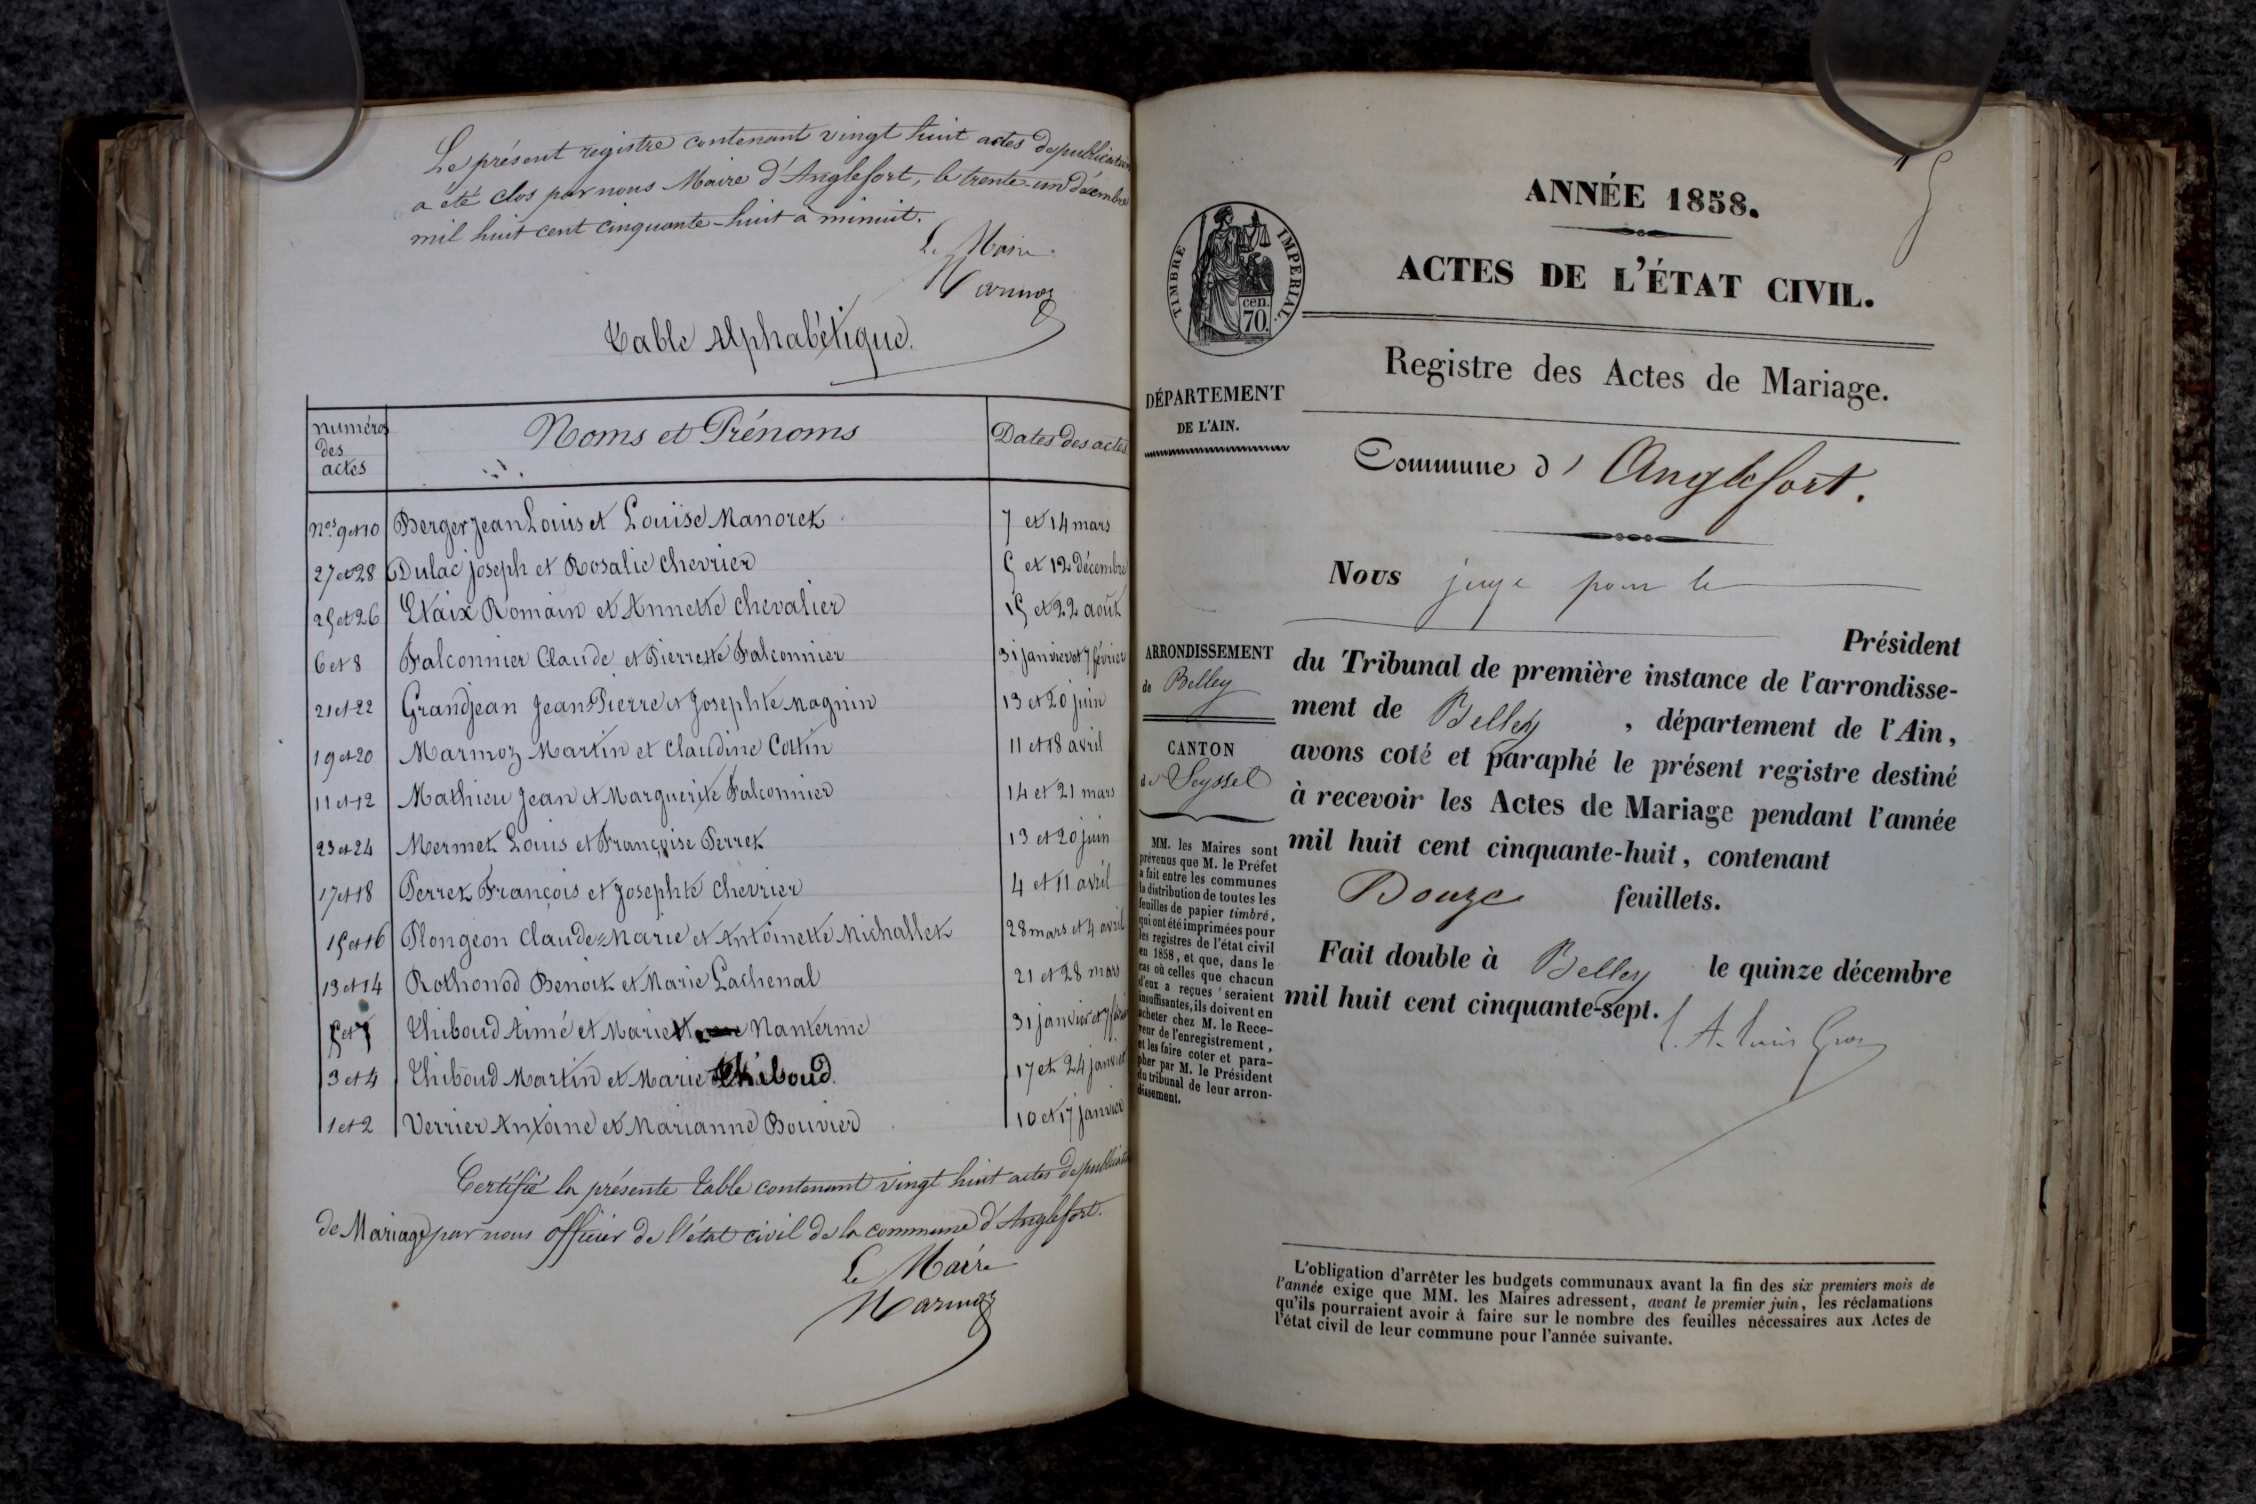 Le présent registre contenant vingt huit actes de publication
a été clos par nous Maire d'Anglefort, le trente-un décembre
mil huit cent cinquante-huit à minuit.
Le Maire
Marmoz
Table Alphabétique.
numéros des actes
Noms et Prénoms
Dates des actes
nos 9 et 10 Berger Jean Louis et Louise Manoret 7 et 14 mars
27 et 28 Dulac joseph et Rosalie Chevrier 5 et 12 décembre
25 et 26 Etaix Romain et Annette Chevalier 15 et 22 août
6 et 8 Falconnier Claude et Pierrette Falconnier 31 janvier et 7 février
21 et 22 Grandjean Jean Pierre et Josephte Magnin 13 et 20 juin
19 et 20 Marmoz Martin et Claudine Cottin 11 et 18 avril
11 et 12 Mathieu Jean et Marguerite Falconnier 14 et 21 mars
23 et 24 Mermet Louis et Françoise Perret 13 et 20 juin
17 et 18 Perret François et Josephte Chevrier 4 et 11 avril
15 et 16 Plongeon Claude-Marie et Antoinette Michallet 28 mars et 4 avril
13 et 14 Rothonod Benoit et Marie Lachenal 21 et 28 mars
5 et 7 Thiboud Aimé et Marie Nanterme 31 janvier et 7 février
3 et 4 Thiboud Martin et Marie Thiboud. 17 et 24 janvier
1 et 2 Verrier Antoine et Marianne Bouvier 10 et 17 janvier
Certifié la présente table contenant vingt huit actes de publication
de Mariage par nous officier de l'état civil de la commune d'Anglefort.
Le Maire
Marmoz
ANNÉE 1858.
TIMBRE IMPERIAL.
cen.
70.
ACTES DE L'ÉTAT CIVIL.
Registre des Actes de Mariage.
DÉPARTEMENT
DE L'AIN.
Commune d'Anglefort.
Nous juge pour le
Président
ARRONDISSEMENT
de Belley
du Tribunal de première instance de l'arrondisse-
ment de Belley, département de l'Ain,
CANTON
de Seyssel
avons coté et paraphé le présent registre destiné
à recevoir les Actes de Mariage pendant l'année
mil huit cent cinquante-huit, contenant
Douze feuillets.
Fait double à Belley le quinze décembre
mil huit cent cinquante-sept.
MM. les Maires sont
prévenus que M. le Préfet
a fait entre les communes
la distribution de toutes les
feuilles de papier timbré,
qui ont été imprimées pour
les registres de l'état civil
en 1858, et que, dans le
cas où celles que chacun
d'eux a reçues seraient
insuffisantes, ils doivent en
acheter chez M. le Rece-
veur de l'enregistrement,
et les faire coter et para-
pher par M. le Président
du tribunal de leur arron-
dissement.
L'obligation d'arrêter les budgets communaux avant la fin des six premiers mois de
l'année exige que MM. les Maires adressent, avant le premier juin, les réclamations
qu'ils pourraient avoir à faire sur le nombre des feuilles nécessaires aux Actes de
l'état civil de leur commune pour l'année suivante.